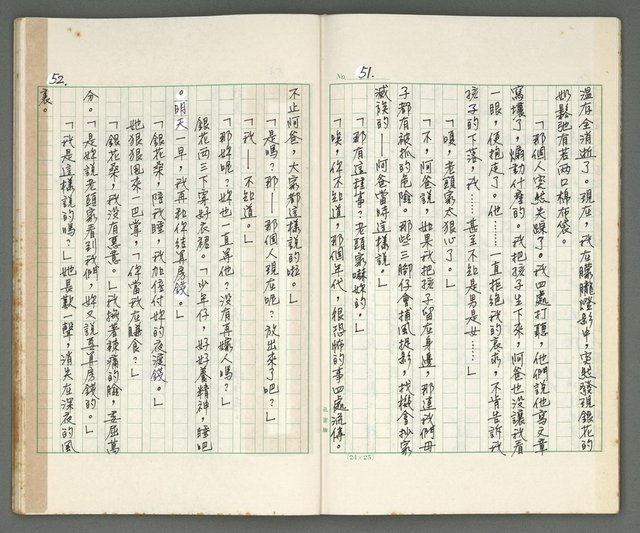 51.
No.
溫存全消逝了。現在，我在朦朧燈影中，突然發現銀花的
奶鬆弛有若兩口棉布袋。
「那個人突然失踪了。我四處打聽，他們說他寫文章
寫壞了，煽動什麼的。我把孩子生下來，阿爸也沒讓我看
一眼，便抱走了。他……一直拒絕我的哀求，不肯告訴我
孩子的下落，我……甚至不知是男是女……」
「嘖，老頭家太狠心了。」
「不，阿爸說，如果我把孩子留在身邊，那連我們母
子都有被抓的危險。那些三腳仔會捕風捉影，找機會抄家
滅族的——阿爸當時這樣說。」
「那有這種事？老頭家嚇妳的。」
「唉，你不知道，那個年代，很恐怖的事四處流傳。
(24×25)
52.
不止阿爸，大家都這樣說的啦。」
「是嗎？那——那個人現在呢？放出來了吧？」
「我——不知道。」
「那妳呢？妳也一直等他？沒有再嫁人嗎？」
銀花兩三下穿好衣裙。「少年仔，好好養精神，睡吧
。明天一早，我再和你結算房錢。」
「銀花桑，陪我睡，我加倍付妳的夜渡錢。」
她狠狠甩來一巴掌，「你當我在賺食？」
「銀花桑，我沒有惡意。」我撫著辣痛的臉，委屈萬
分。「是妳說老頭家看到我們，妳又說要算房錢的。」
「我是這樣說的嗎？」她長歎一聲，消失在深夜的風
裏。